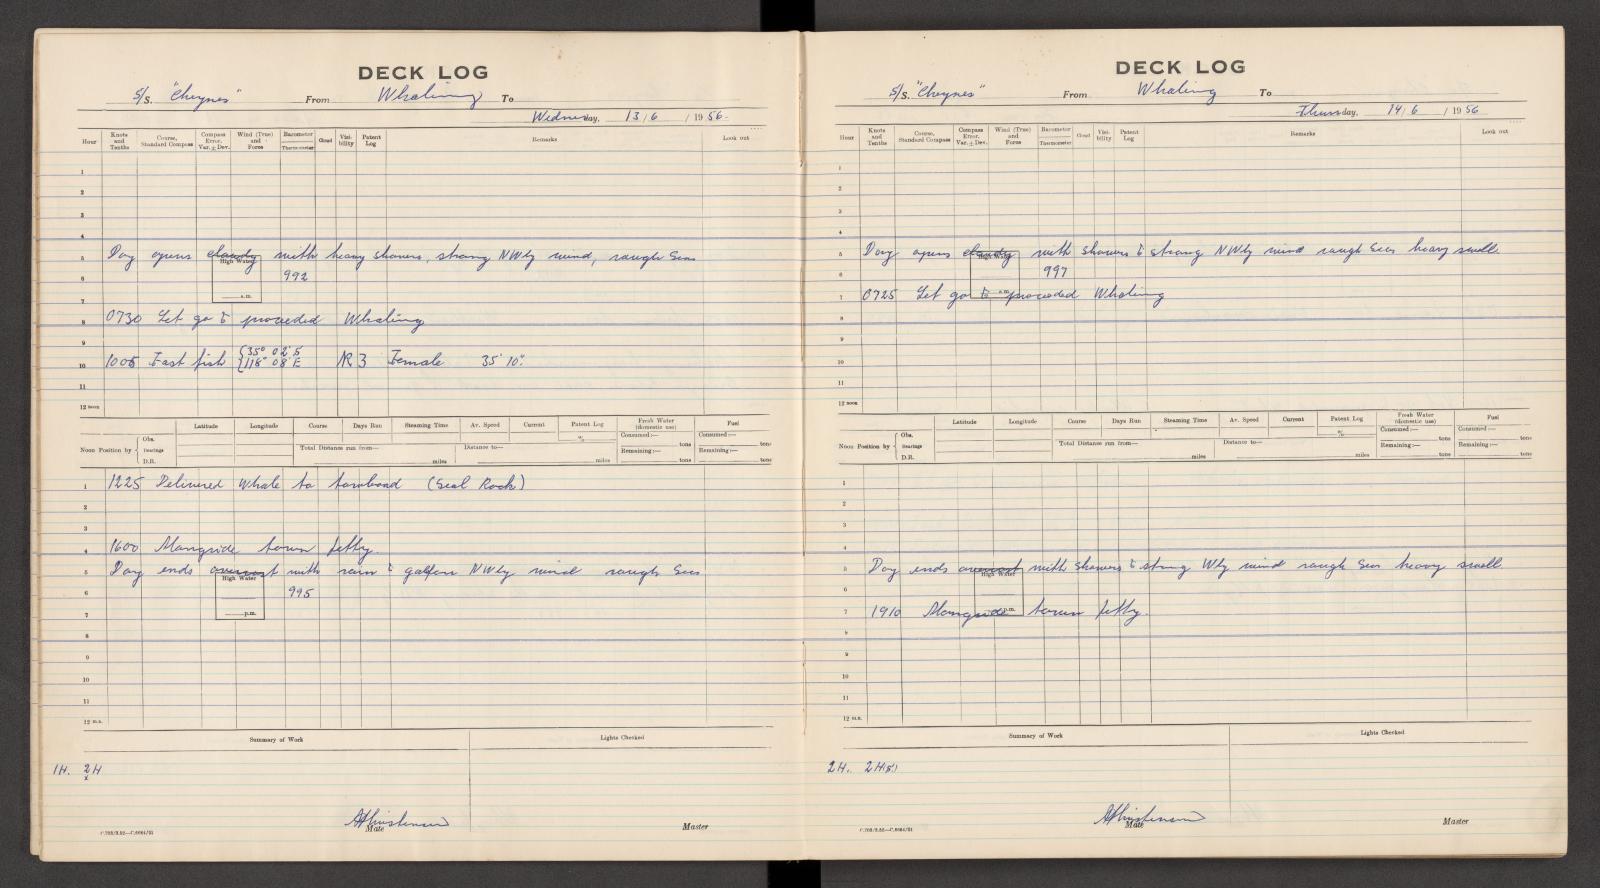 DECK LOG
S/S. "Cheynes" From Whaling To
Wednesday, 13/6/1956.
Hour Knots and Tenths Course, Standard Compass Compass Error. Var. ± Dev. Wind (True) and Force Barometer Thermometer Cloud Visi-bility Patent Log Remarks Look out
1
2
3
4
5 Day opens cloudy with heavy showers, strong NWly wind, rough seas
High Water
6 992
a.m.
7
8 0730 Let go & proceeded Whaling
9
10 1005 Fast fish {35° 02' S 118° 08' E 3 Female 35' 10".
11
12 noon
Latitude Longitude Course Days Run Steaming Time Av. Speed Current Patent Log Fresh Water (domestic use) Fuel
Noon Position by { Obs. Bearings D.R.
Total Distance run from— miles Distance to— miles Consumed:— tons Remaining:— tons Consumed:— tons Remaining:— tons
1 1225 Delivered whale to towboad (Seal Rock)
2
3
4 1600 Alongside town jetty.
5 Day ends overcast with rain & galforce NWly wind rough seas
High Water
6 995
p.m.
7
8
9
10
11
12 m.n.
Summary of Work Lights Checked
1H. 2H
x
AChristensen
Mate Master
DECK LOG
S/S. "Cheynes" From Whaling To
Thursday, 14/6/1956
Hour Knots and Tenths Course, Standard Compass Compass Error. Var. ± Dev. Wind (True) and Force Barometer Thermometer Cloud Visi-bility Patent Log Remarks Look out
1
2
3
4
5 Day opens cloudy with showers & strong NWly wind rough seas heavy swell.
High Water
6 997
a.m.
7 0725 Let go & proceeded Whaling
8
9
10
11
12 noon
Latitude Longitude Course Days Run Steaming Time Av. Speed Current Patent Log Fresh Water (domestic use) Fuel
Noon Position by { Obs. Bearings D.R.
Total Distance run from— miles Distance to— miles Consumed:— tons Remaining:— tons Consumed:— tons Remaining:— tons
1
2
3
4
5 Day ends overcast with showers & strong Wly wind rough seas heavy swell.
High Water
6
p.m.
7 1910 Alongside town jetty.
8
9
10
11
12 m.n.
Summary of Work Lights Checked
2H. 2H
AChristensen
Mate Master